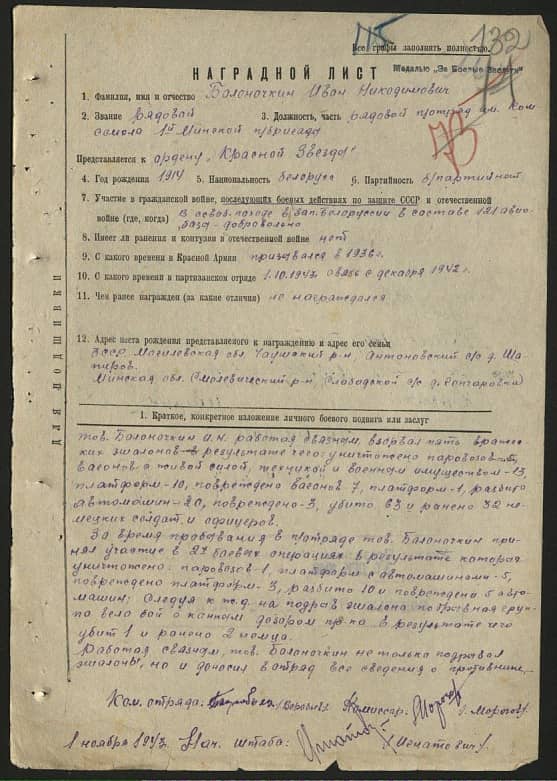 132
Все графы заполнять полностью.
НАГРАДНОЙ ЛИСТ
Медалью „За Боевые Заслуги"
1. Фамилия, имя и отчество Балоночкин Иван Никодимович
2. Звание Рядовой 3. Должность, часть рядовой п/отряд им. Ком
сомола 1ой Минской п/бригады
Представляется к ордену „Красной Звезды"
4. Год рождения 1914 5. Национальность белорус 6. Партийность б/партийный
7. Участие в гражданской войне, последующих боевых действиях по защите СССР и отечественной
войне (где, когда) В освоб. походе в зап. Белоруссии в составе 121 авиа-
база - добровольно
8. Имеет ли ранения и контузии в отечественной войне нет
9. С какого времени в Красной Армии призывался в 1936 г.
10. С какого времени в партизанском отряде 1.10.1943г. связь с декабря 1942 г.
11. Чем ранее награжден (за какие отличия) не награждался
12. Адрес места рождения представляемого к награждению и адрес его семьи
БССР Могилевская обл. Чаусский р-н, Антоновский с/с д.
Минская обл. Смолевичский р-н, Слободской с/с д.
ДЛЯ ПОДШИВКИ
1. Краткое, конкретное изложение личного боевого подвига или заслуг
тов. Балоночкин И.Н. работая связным, взорвал пять вражес
ких эшелонов в результате чего: уничтожено паровозов-
вагонов с живой силой, техникой и военным имуществом-13,
платформ-10, повреждено вагонов 7, платформ-1, разбито
автомашин-20, повреждено-3, убито 63 и ранено 32 не-
мецких солдат и офицеров.
За время пребования в п/отряде тов. Балоночкин при
нял участие в 27 боевых операциях в результате которая
уничтожено: паровозов-1, платформ с автомашинами-5,
повреждено платформ-3, разбито 10 и повреждено 5 авто-
машин; Следуя к ж.д. на подрыв эшелона подрывная груп
па вела бой с конным дозором пр-ка в результате чего
убит 1 и ранено 2 немца.
Работая связным, тов. Балоночкин не только подрывал
эшелоны, но и доносил в отряд все сведения о противнике.
Ком. отряда: /Воробьев/ Комиссар /Морогов/
1 ноября 1943г. Нач. штаба: /Игнатович/